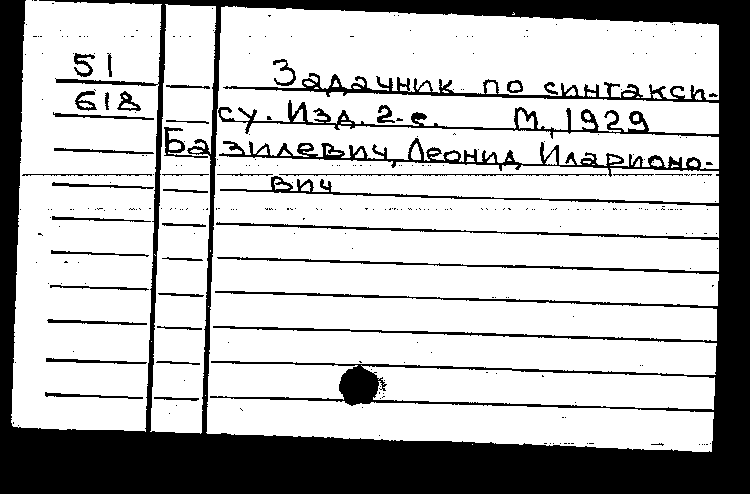 51
618
Задачник по синтакси-
су. Изд. 2-е. М., 1929
Базилевич, Леонид Иларионо-
вич